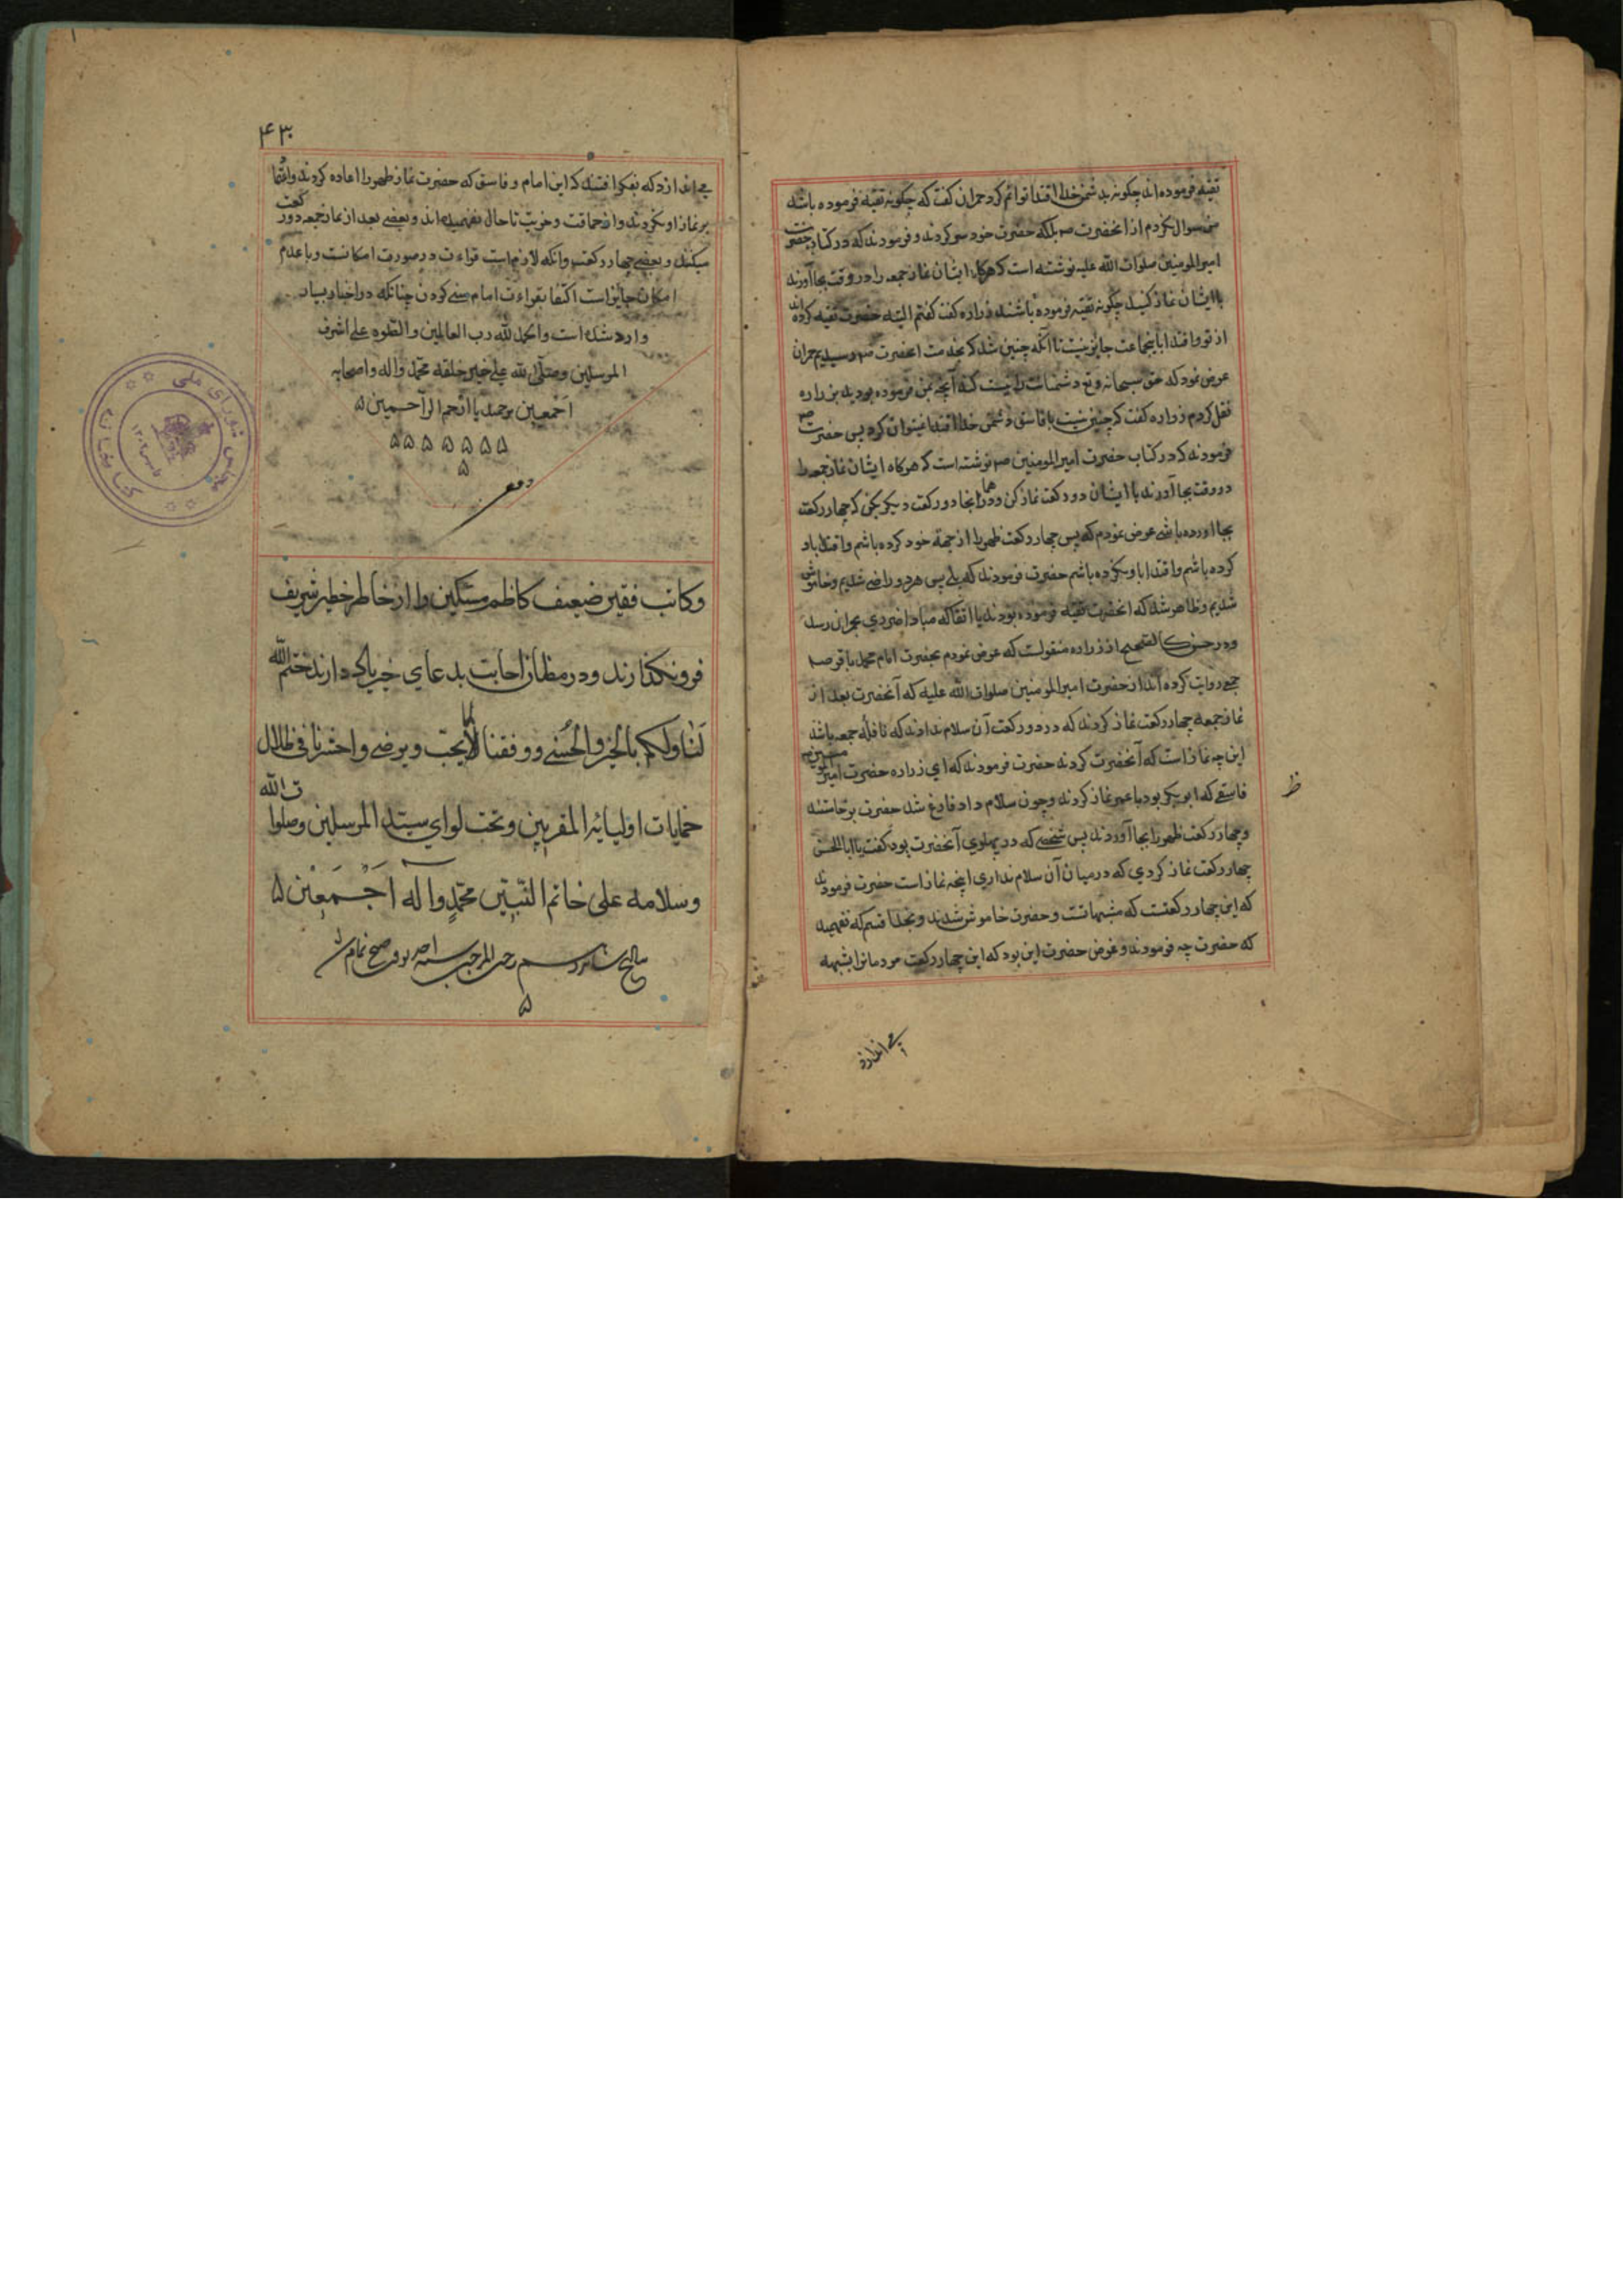 تقیه فرموده‌اند چگونه بدشمن خدا اقتدا توانم کرد حمران گفت که چگونه تقیه فرموده باشد
من سوال نکردم از انحضرت ص بلکه حضرت خود سر کردند و فرمودند که در کتاب حضرت
امیرالمومنین صلوات الله علیه نوشته است که هرگاه ایشان نماز جمعه را در وقت بجا آورند
با ایشان نماز کنید چگونه تقیه فرموده باشند زراره گفت گفتم البته حضرت تقیه کرده‌اند
از تو و اقتدا باینجماعت جایز نیست تا آنکه چنین شد که بخدمت انحضرت ص رسیدیم حمران
عرض نمود که حق سبحانه و تع آنچه بمن فرموده بودید بزراره
نقل کردم زراره گفت که چنین نیست با فاسق دشمن خدا اقتدا نمیتوان کرد پس حضرت ص
فرمودند که در کتاب حضرت امیرالمومنین ص نوشته است که هرگاه ایشان نماز جمعه را
در وقت بجا آورند با ایشان دو رکعت نماز کن و در همانجا دو رکعت دیگر بکن که چهار رکعت
بجا آورده باشی عرض نمودم که پس چهار رکعت ظهر را از جهة خود کرده باشم و اقتدا باو
کرده باشم و اقتدا باو نکرده باشم حضرت فرمودند که بلی پس هر دو راضی شدیم و خاموش
شدیم و ظاهر شد که انحضرت تقیه فرموده بودند یا اتقا که مبادا ضرری بحمران رسد
و در حسن کالصحیح از زراره منقولست که عرض نمودم بحضرت امام محمد باقر ص
جمعی روایت کرده‌اند از حضرت امیرالمومنین صلوات الله علیه که آنحضرت بعد از
نماز جمعه چهار رکعت نماز کردند که در دو رکعت آن سلام ندادند که نافله جمعه باشد
این چه نماز است که آنحضرت کردند حضرت فرمودند که ای زراره حضرت امیرالمومنین ص
فاسقی که ابوبکر بود یا عمر نماز کردند و چون سلام داد فارغ شد حضرت برخاستند
و چهار رکعت ظهر را بجا آوردند پس شخصی که در پهلوی آنحضرت بود گفت یا ابا الحسن
چهار رکعت نماز کردی که در میان آن سلام نداری اینچه نماز است حضرت فرمودند
که این چهار رکعتست که مشبهاتست و حضرت خاموش شدند و بخدا قسم که نفهمید
که حضرت چه فرمودند و غرض حضرت این بود که این چهار رکعت مردمانرا بشبهه
می اندازد
ظ
۴۳۰
می اندازد که بفکر افتند که این امام و فاسق که حضرت نماز ظهر را اعاده کردند و اکتفا
بر نماز او نکردند و از حماقت و خریت تا حال نفهمیده‌اند و بعضی بعد از نماز جمعه دو رکعت
میکنند و بعضی چهار رکعت و آنکه لازم است قراءت در صورت امکانست و با عدم
امکان جایز است اکتفا بقراءت امام سنی کردن چنانکه در اخبار بسیار
وارد شده است والحمد لله رب العالمین والصلوة علی اشرف
المرسلین وصلی الله علی خیر خلقه محمد وآله واصحابه
اجمعین برحمتک یا ارحم الراحمین ۵
۵ ۵ ۵ ۵ ۵ ۵ ۵
۵
وکاتب فقیر ضعیف کاظم مسکین را از خاطر خطیر شریف
فرو نگذارند و در مظان اجابت بدعای خیر یاد دارند ختم الله
لنا ولکم بالخیر والحسنی ووفقنا لما یحب ویرضی واحشرنا فی ظلال
حمایات اولیائه المقربین وتحت لوای سید المرسلین وصلوات الله
وسلامه علی خاتم النبیین محمد وآله اجمعین ۵
بتاریخ رجب المرجب سنه
۵
کتابخانه مجلس شورای ملی